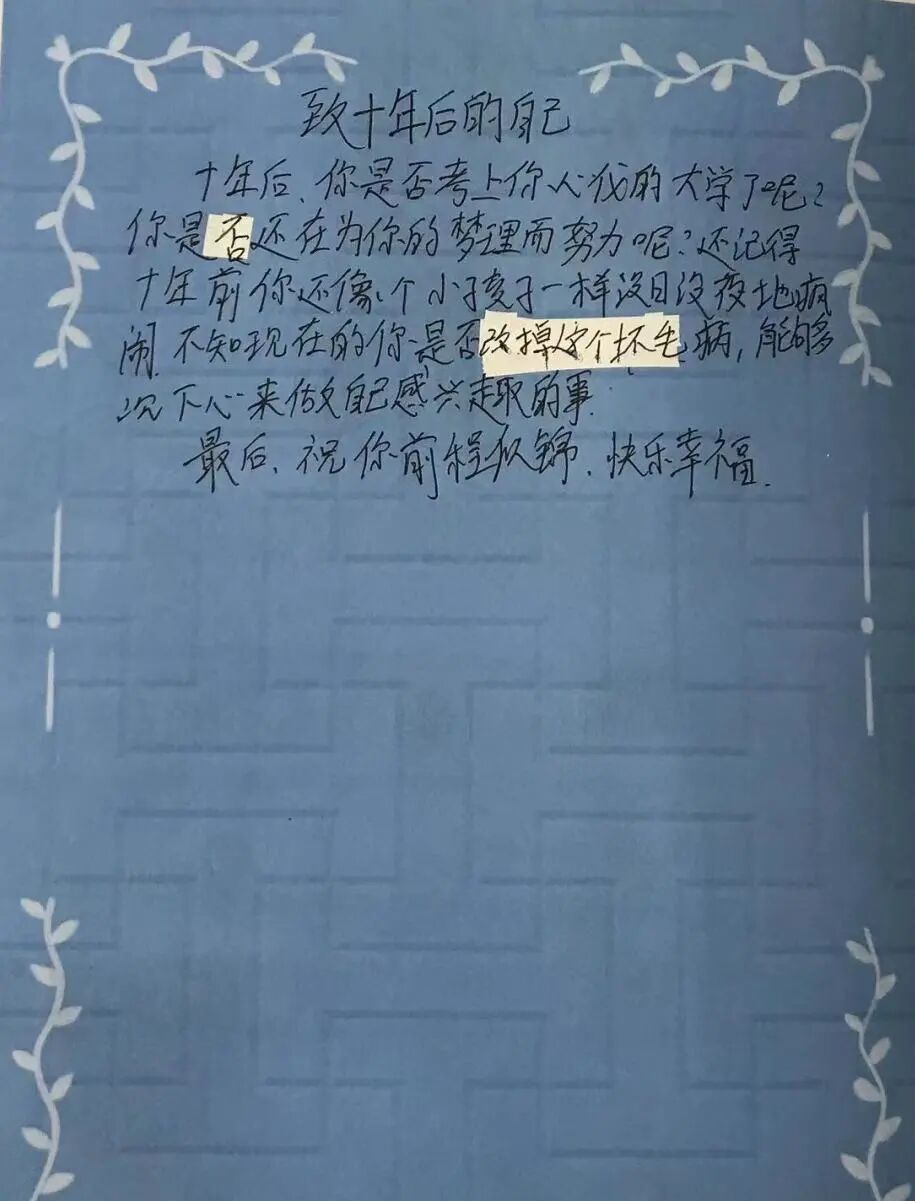 致十年后的自己
十年后、你是否考上你心仪的大学了呢?
你是否还在为你的梦理而努力呢?还记得
十年前你还像个小孩子一样没日没夜地疯
闹.不知现在的你是否改掉这个坏毛病,能够
沉下心来做自己感兴趣的事.
最后、祝你前程似锦、快乐幸福.